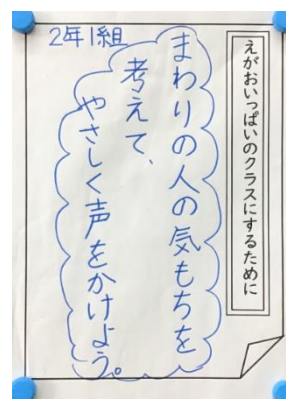 えがおいっぱいのクラスにするために
2年1組
まわりの人の気もちを
考えて、
やさしく声をかけよう。